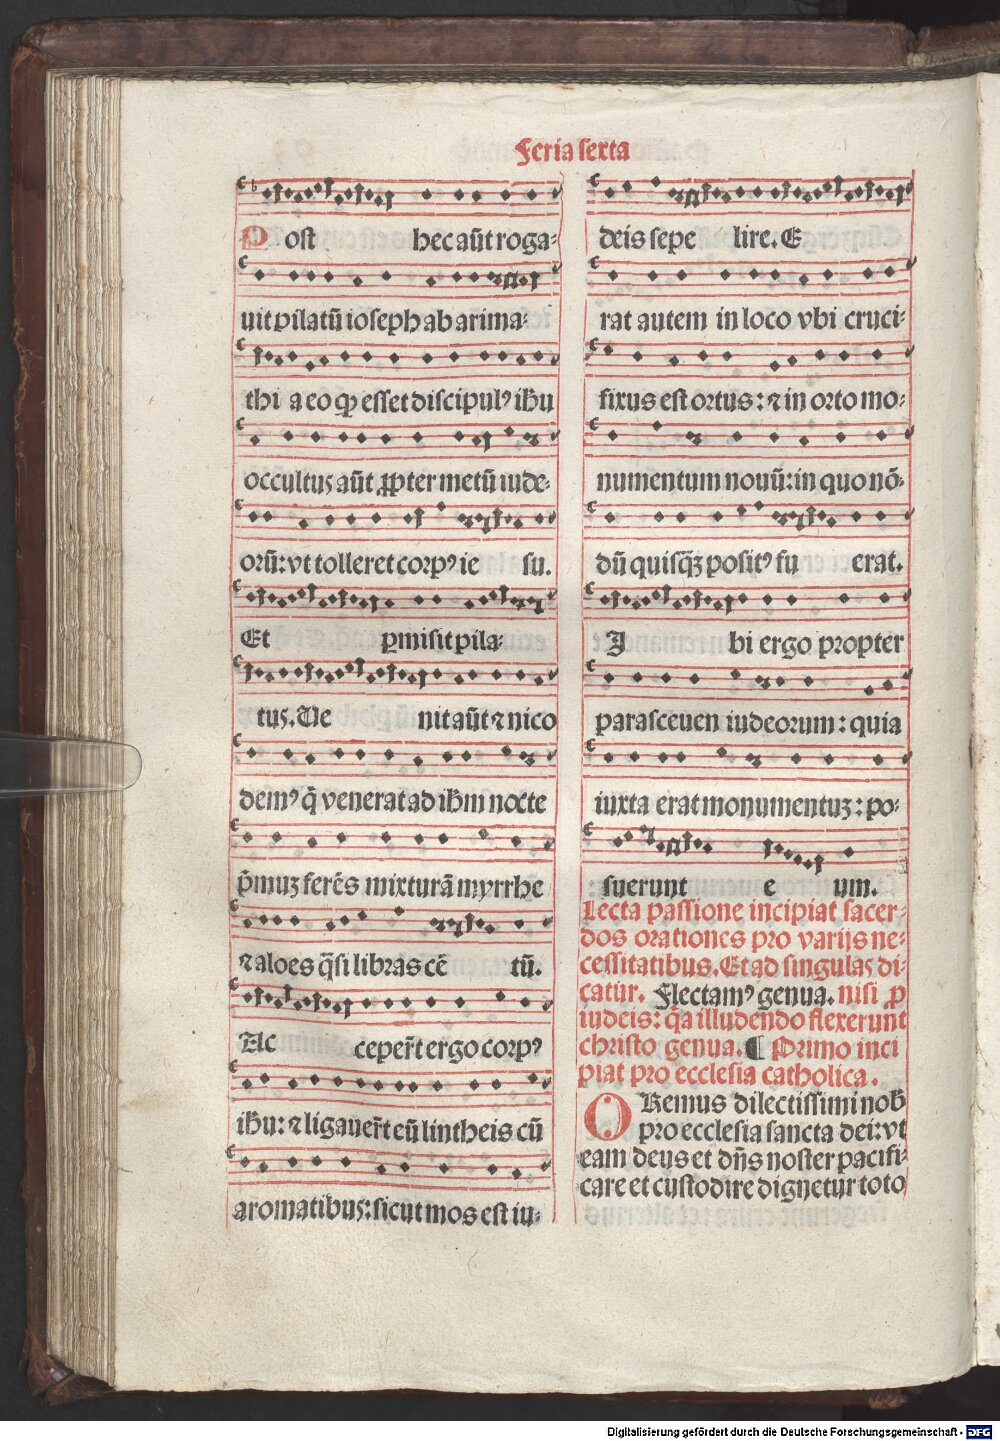 Feria sexta
Post hec aūt roga-
uit pilatū ioseph ab arima-
thi a eo qp esset discipulꝰ ihū
occultus aūt ꝓpter metū iude-
orū: vt tolleret corpꝰ ie su.
Et ꝑmisit pila-
tus. Ue nit aūt ⁊ nico
demꝰ q̄ venerat ad ihm nocte
p̄muz ferēs mixturā myrrhe
⁊ aloes q̄si libras cē tū.
Ac ceper̄t ergo corpꝰ
ihū: ⁊ ligauer̄t eū lintheis cū
aromatibus: sicut mos est iu-
deis sepe lire. E
rat autem in loco vbi cruci-
fixus est ortus: ⁊ in orto mo-
numentum nouū: in quo nō-
dū quisq̄ȝ positꝰ fu erat.
I bi ergo propter
parasceuen iudeorum: quia
iuxta erat monumentuȝ: po-
suerunt e um.
Lecta passione incipiat sacer-
dos orationes pro varijs ne-
cessitatibus. Et ad singulas di-
catur. Flectamꝰ genua. nisi ꝓ
iudeis: q̄a illudendo flexerunt
christo genua. ¶ Primo inci
piat pro ecclesia catholica.
ORemus dilectissimi nob̄
pro ecclesia sancta dei: vt
eam deus et dn̄s noster pacifi-
care et custodire dignetur toto
Digitalisierung gefördert durch die Deutsche Forschungsgemeinschaft - DFG